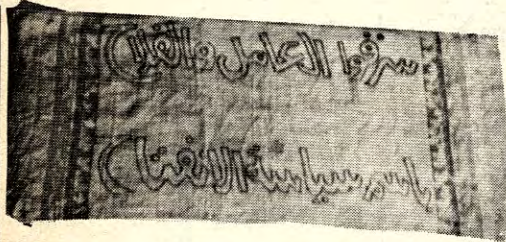 سرقوا العامل والفلاح
باسم سياسة الانفتاح